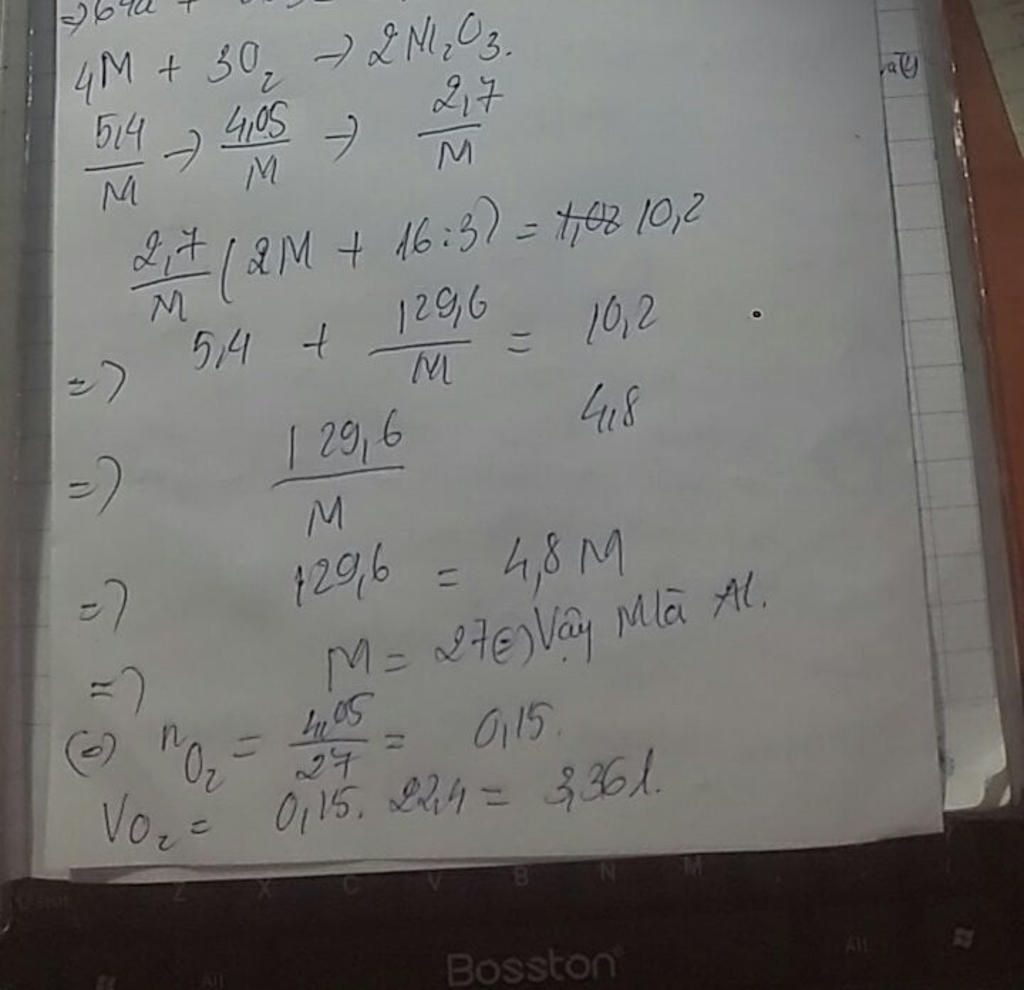 => 64a +
4M + 3O₂ -> 2M₂O₃.
5,4/M -> 4,05/M -> 2,7/M
2,7/M (2M + 16:3) = 1,08 10,2
=> 5,4 + 129,6/M = 10,2
=> 129,6/M 4,8
=> 129,6 = 4,8 M
=> M = 27 (=) Vậy M là Al.
(=) nO₂ = 4,05/27 = 0,15.
VO₂ = 0,15. 22,4 = 3,36 l.
Z X C V B N M
Alt Alt
Bosston